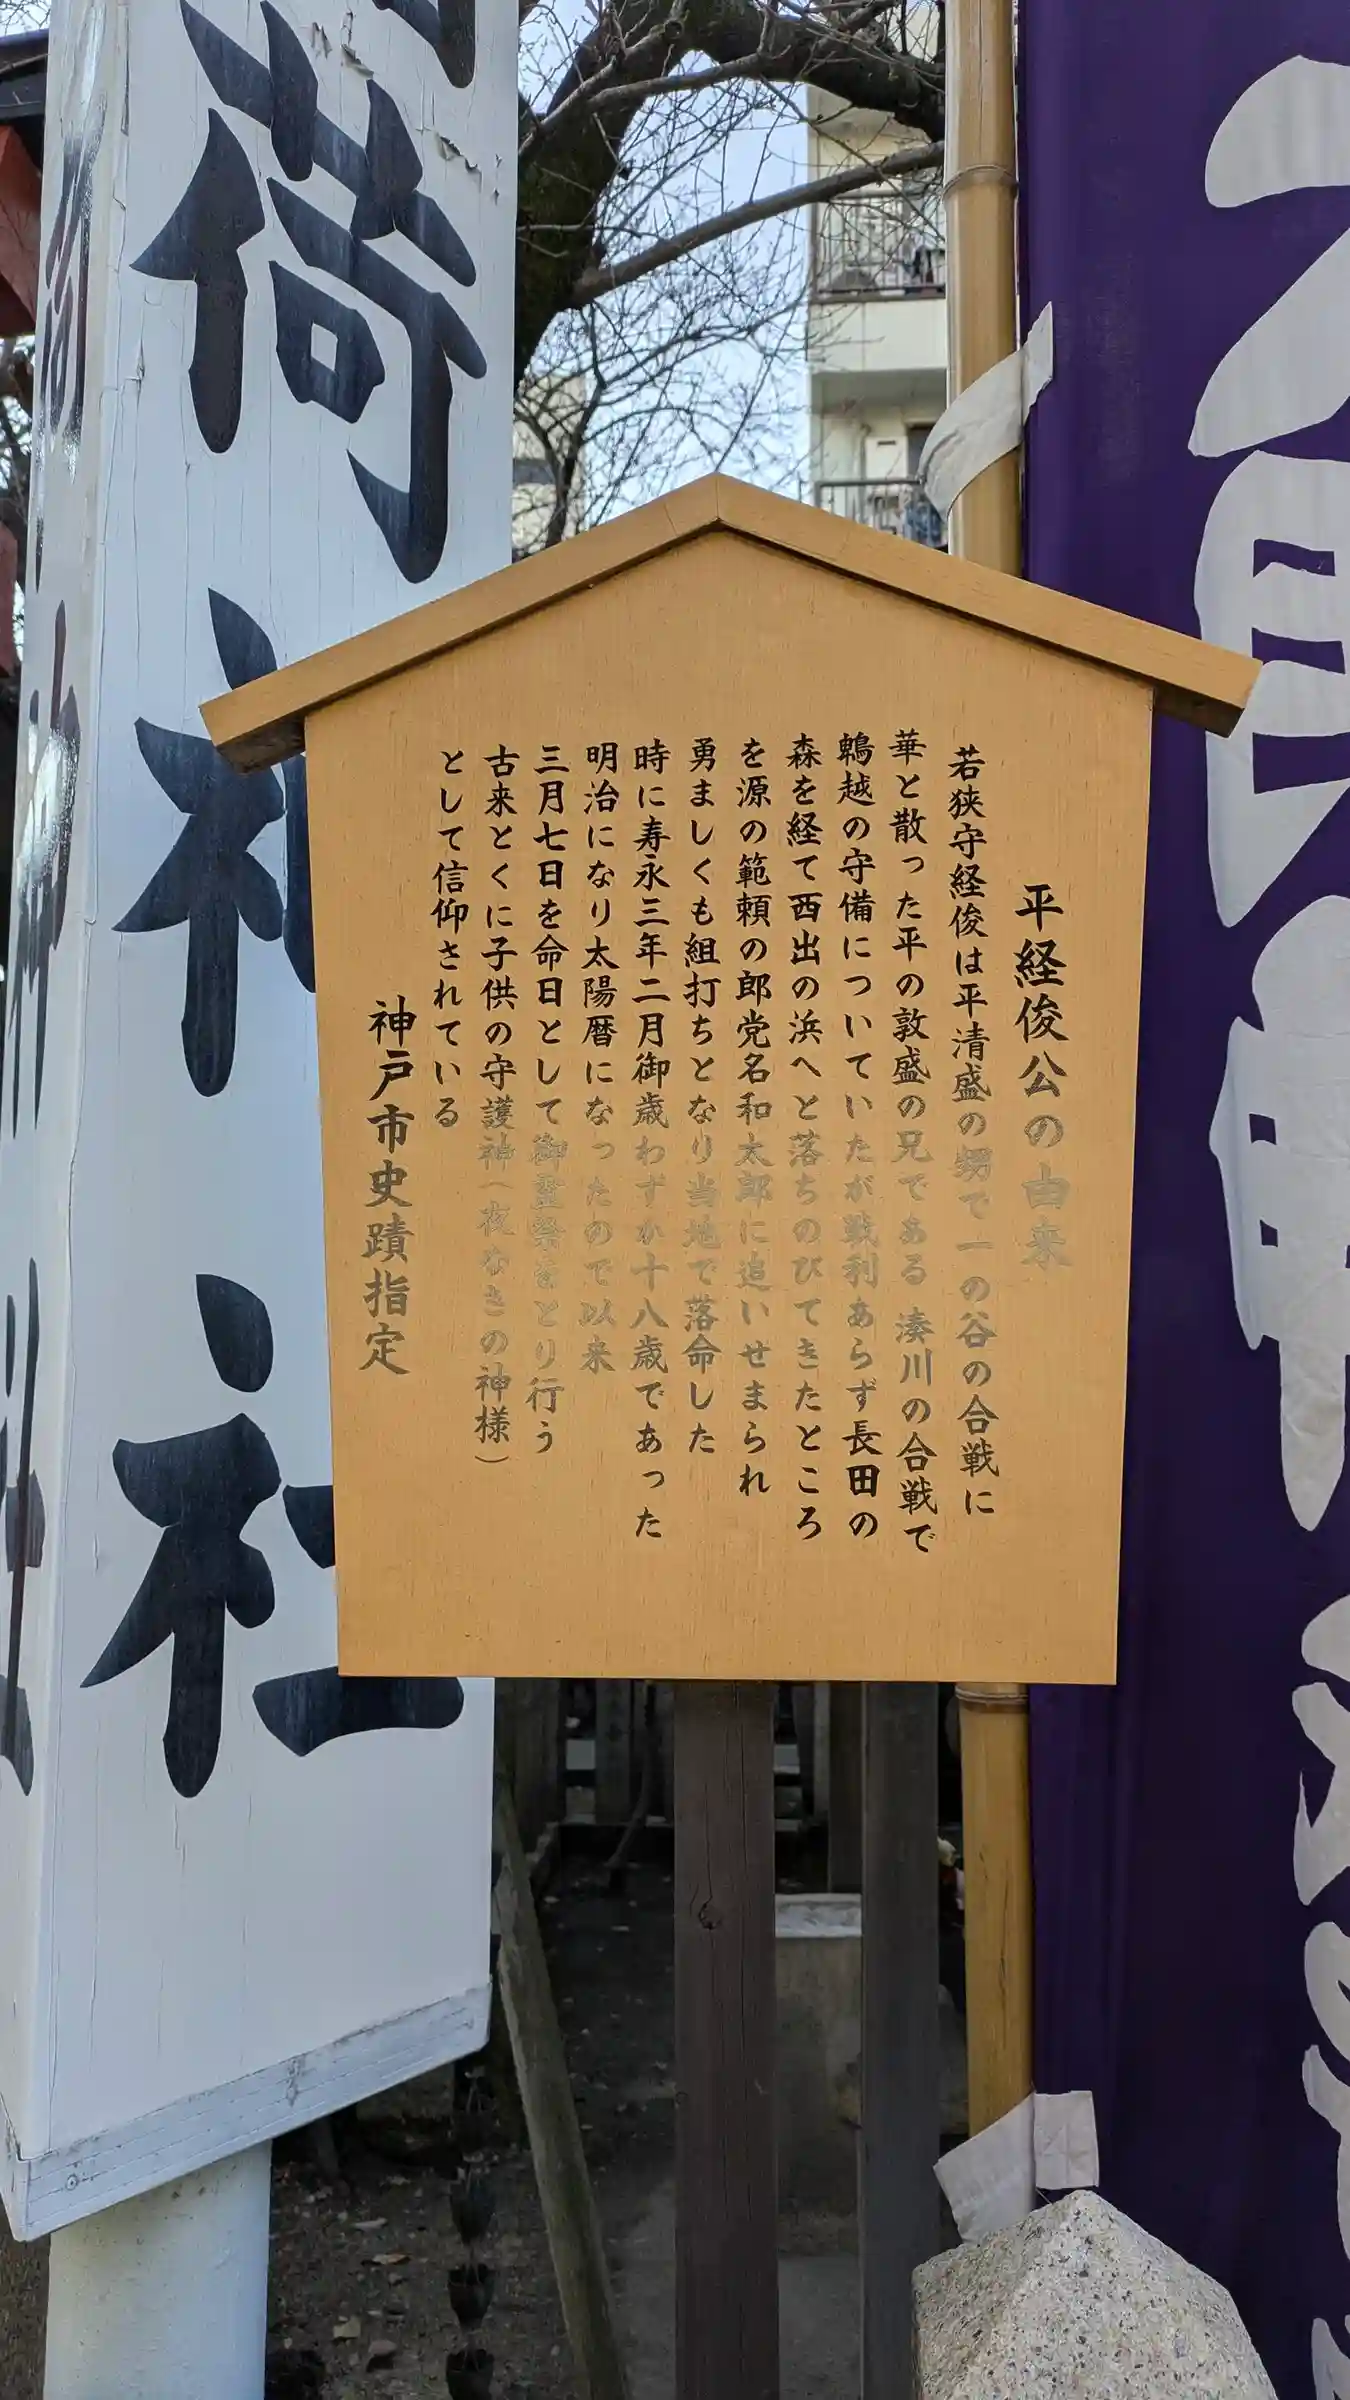 平経俊公の由来
若狭守経俊は平清盛の甥で一の谷の合戦に
華と散った平の敦盛の兄である 湊川の合戦で
鵯越の守備についていたが戦利あらず長田の
森を経て西出の浜へと落ちのびてきたところ
を源の範頼の郎党名和太郎に追いせまられ
勇ましくも組打ちとなり当地で落命した
時に寿永三年二月御歳わずか十八歳であった
明治になり太陽暦になったので以来
三月七日を命日として御霊祭をとり行う
古来とくに子供の守護神（夜なきの神様）
として信仰されている
神戸市史蹟指定
荷神社